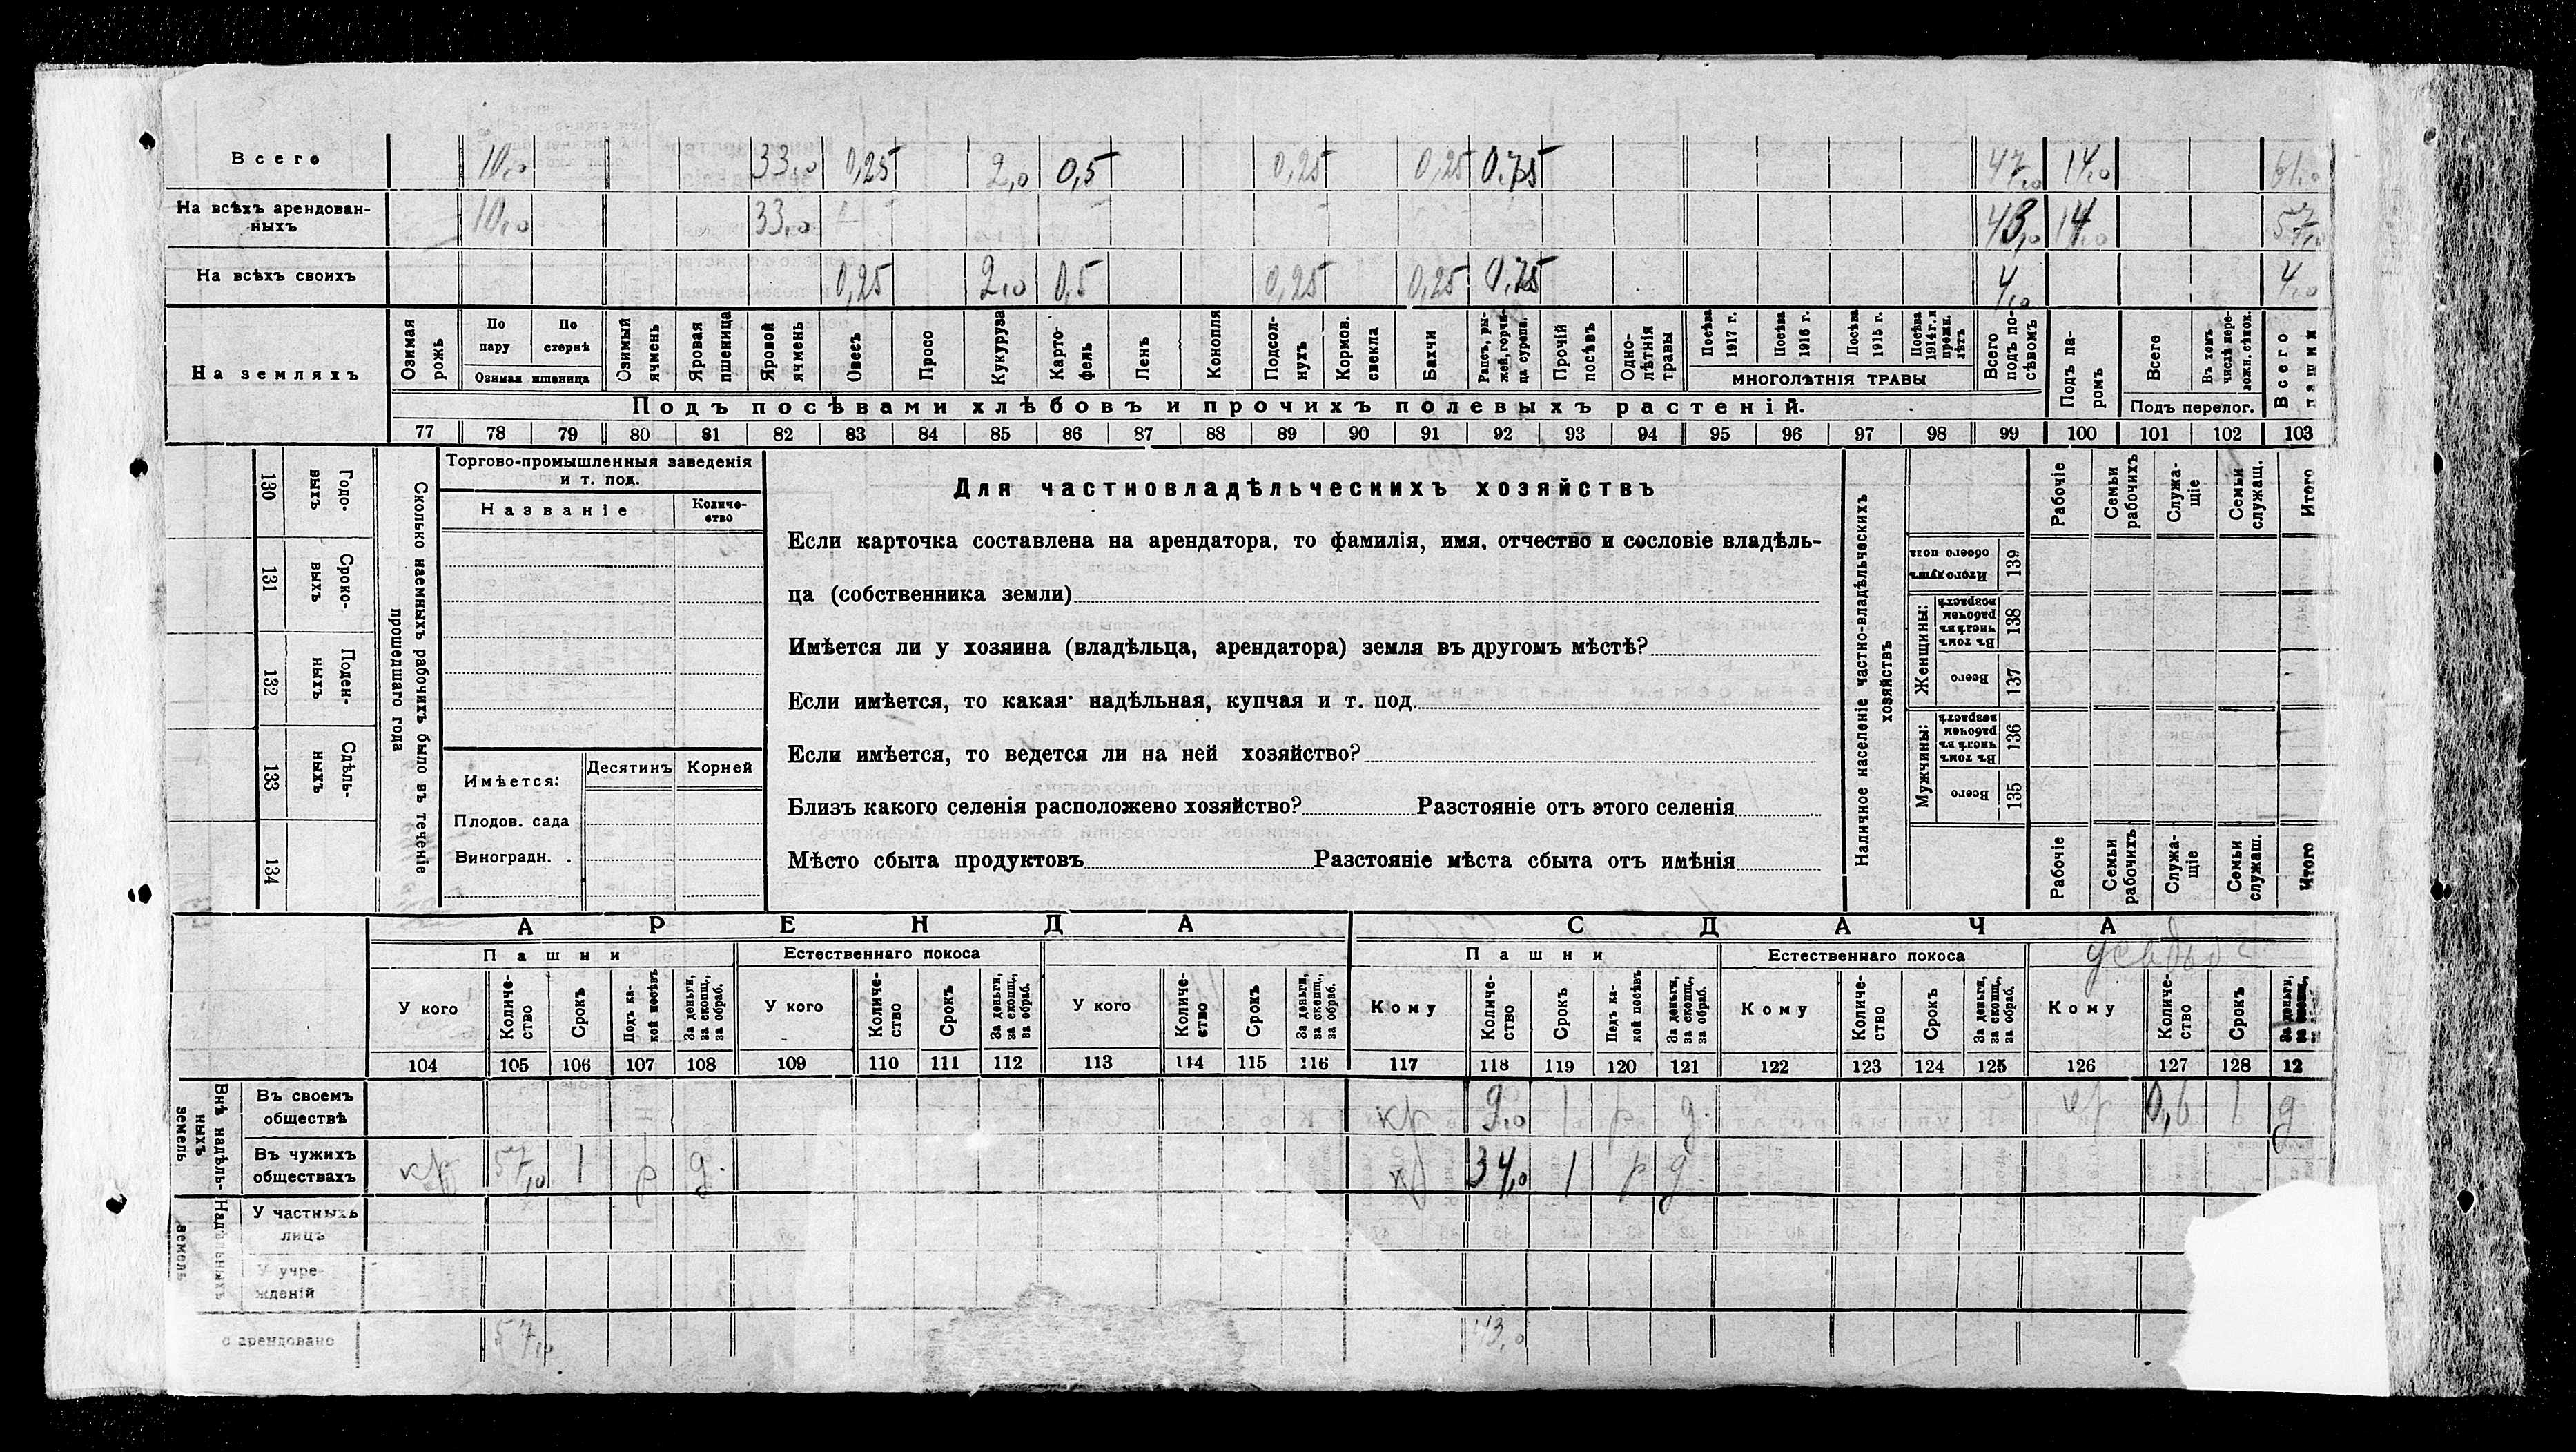 Всего 10,0 33,0 0,25 2,0 0,5 0,25 0,25 0,75 47,0 14,0 61,0
На всѣхъ арендован-
ныхъ 10,0 33,0 43,0 14,0 57,0
На всѣхъ своихъ 0,25 2,0 0,5 0,25 0,25 0,75 4,0 4,0
На земляхъ
Озимая рожь
По пару
По стернѣ
Озимая пшеница
Озимый ячмень
Яровая пшеница
Яровой ячмень
Овесъ
Просо
Кукуруза
Карто-
фель
Ленъ
Конопля
Подсол-
нухъ
Кормов. свекла
Бахчи
Рапсъ, ры-
жей, горчи-
ца сурепа.
Прочій посѣвъ
Одно-
лѣтнія травы
Посѣва 1917 г.
Посѣва 1916 г.
Посѣва 1915 г.
Посѣва 1914 г. и прежн. лѣтъ
МНОГОЛѢТНІЯ ТРАВЫ
Всего подъ по-
сѣвомъ
Подъ па-
ромъ
Всего
Въ томъ числѣ пере-
ложн. сѣнок.
Подъ перелог.
Всего пашни
Подъ посѣвами хлѣбовъ и прочихъ полевыхъ растеній.
77 78 79 80 81 82 83 84 85 86 87 88 89 90 91 92 93 94 95 96 97 98 99 100 101 102 103
130 Годо-
выхъ
131 Сроко-
выхъ
132 Поден-
ныхъ
133 Сдѣль-
ныхъ
134
Сколько наемныхъ рабочихъ было въ теченіе
прошедшаго года
Торгово-промышленныя заведенія
и т. под.
Названіе
Количе-
ство
Имѣется:
Десятинъ
Корней
Плодов. сада
Виноградн. .
Для частновладѣльческихъ хозяйствъ
Если карточка составлена на арендатора, то фамилія, имя, отчество и сословіе владѣль-
ца (собственника земли)
Имѣется ли у хозяина (владѣльца, арендатора) земля въ другомъ мѣстѣ?
Если имѣется, то какая: надѣльная, купчая и т. под.
Если имѣется, то ведется ли на ней хозяйство?
Близъ какого селенія расположено хозяйство? Разстояніе отъ этого селенія
Мѣсто сбыта продуктовъ Разстояніе мѣста сбыта отъ имѣнія
Наличное населеніе частно-владѣльческихъ
хозяйствъ
Рабочіе
Семьи рабочихъ
Служа-
щіе
Семьи служащ.
Итого
Итого душъ обоего пола 139
Женщины:
Въ томъ числѣ въ рабочемъ возрастѣ 138
Всего 137
Мужчины:
Въ томъ числѣ въ рабочемъ возрастѣ 136
Всего 135
Рабочіе
Семьи рабочихъ
Служа-
щіе
Семьи служащ.
Итого
АРЕНДА
СДАЧА
Пашни
Естественнаго покоса
Пашни
Естественнаго покоса
усадьба
У кого
Количе-
ство
Срокъ
Подъ ка-
кой посѣвъ
За деньги, за скопщ., за обраб.
У кого
Количе-
ство
Срокъ
За деньги, за скопщ., за обраб.
У кого
Количе-
ство
Срокъ
За деньги, за скопщ., за обраб.
Кому
Количе-
ство
Срокъ
Подъ ка-
кой посѣвъ
За деньги, за скопщ., за обраб.
Кому
Количе-
ство
Срокъ
За деньги, за скопщ., за обраб.
Кому
Количе-
ство
Срокъ
За деньги,
104 105 106 107 108 109 110 111 112 113 114 115 116 117 118 119 120 121 122 123 124 125 126 127 128 12
Внѣ надѣль-
ныхъ
земель
Въ своемъ
обществѣ кр 9,0 1 р д. кр 0,6 1 д
Въ чужихъ
обществахъ кр 57,0 1 р д. кр 34,0 1 р д
Надѣльныхъ
земель
У частныхъ
лицъ
У учре-
жденій
с арендовано 57,0 43,0